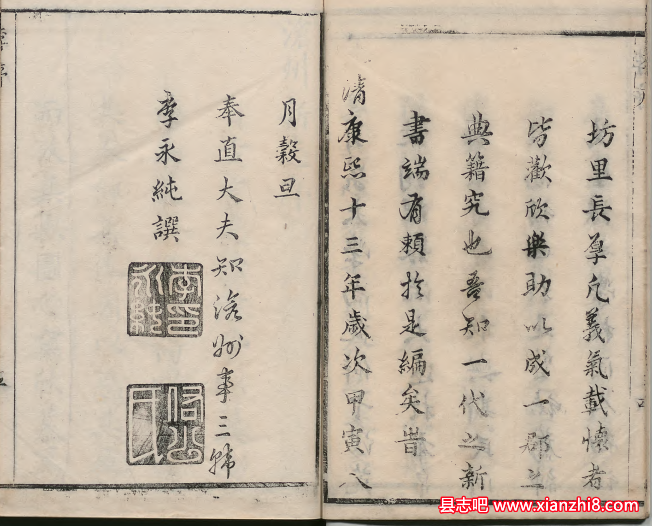 坊里長年凡義氣載懷者
皆歡欣樂助以成一郡之
典籍究也吾知一代之新
書端有賴於是編矣昔
清康熙十三年歲次甲寅八
月穀旦
奉直大夫知洺州事三韓
李永純撰
李印永純
县志吧 www.xianzhi8.com